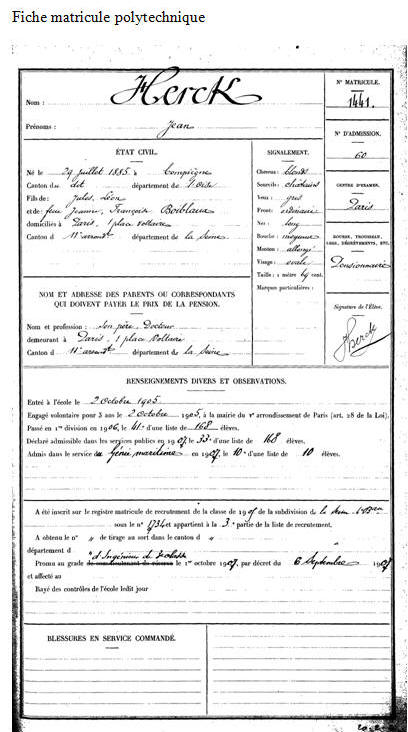 Fiche matricule polytechnique
Nom : Herck
Prénoms : Jean
N° MATRICULE.
1441.
N° D'ADMISSION.
60
CENTRE D'EXAMEN.
Paris
BOURSE, TROUSSEAU,
DÉGRÈVEMENTS, ETC.
Pensionnaire
Signature de l'Élève.
JHerck
ÉTAT CIVIL.
Né le 29 juillet 1885 à Compiègne
Canton du dit département de l'Oise
Fils de : Jules, Léon
et de : feue Jeanne, Françoise
domiciliés à Paris, 1 place Voltaire
Canton d 11e arrondt département de la Seine
SIGNALEMENT.
Cheveux : blonds
Sourcils : châtains
Yeux : gris
Front : ordinaire
Nez : long
Bouche : moyenne
Menton : allongé
Visage : ovale
Taille : 1 mètre 69 cent.
Marques particulières :
NOM ET ADRESSE DES PARENTS OU CORRESPONDANTS
QUI DOIVENT PAYER LE PRIX DE LA PENSION.
Nom et profession : Son père, Docteur
demeurant à Paris, 1 place Voltaire
Canton d 11e arrondt département de la Seine
RENSEIGNEMENTS DIVERS ET OBSERVATIONS.
Entré à l'école le 2 octobre 1905
Engagé volontaire pour 3 ans le 2 octobre 1905, à la mairie du Ve arrondissement de Paris (art. 28 de la Loi).
Passé en 1re division en 1906, le 41e d'une liste de 168 élèves.
Déclaré admissible dans les services publics en 1907, le 33e d'une liste de 168 élèves.
Admis dans le service du Génie maritime en 1907, le 10e d'une liste de 10 élèves.
A été inscrit sur le registre matricule de recrutement de la classe de 1905 de la subdivision de la Seine
sous le n° 1734 et appartient à la 3e partie de la liste de recrutement.
A obtenu le n° " de tirage au sort dans le canton d "
département d "
d'Ingénieur de 3e classe
Promu au grade le 1er octobre 1907, par décret du 6 Septembre 1907
et affecté au
Rayé des contrôles de l'école ledit jour
BLESSURES EN SERVICE COMMANDÉ.